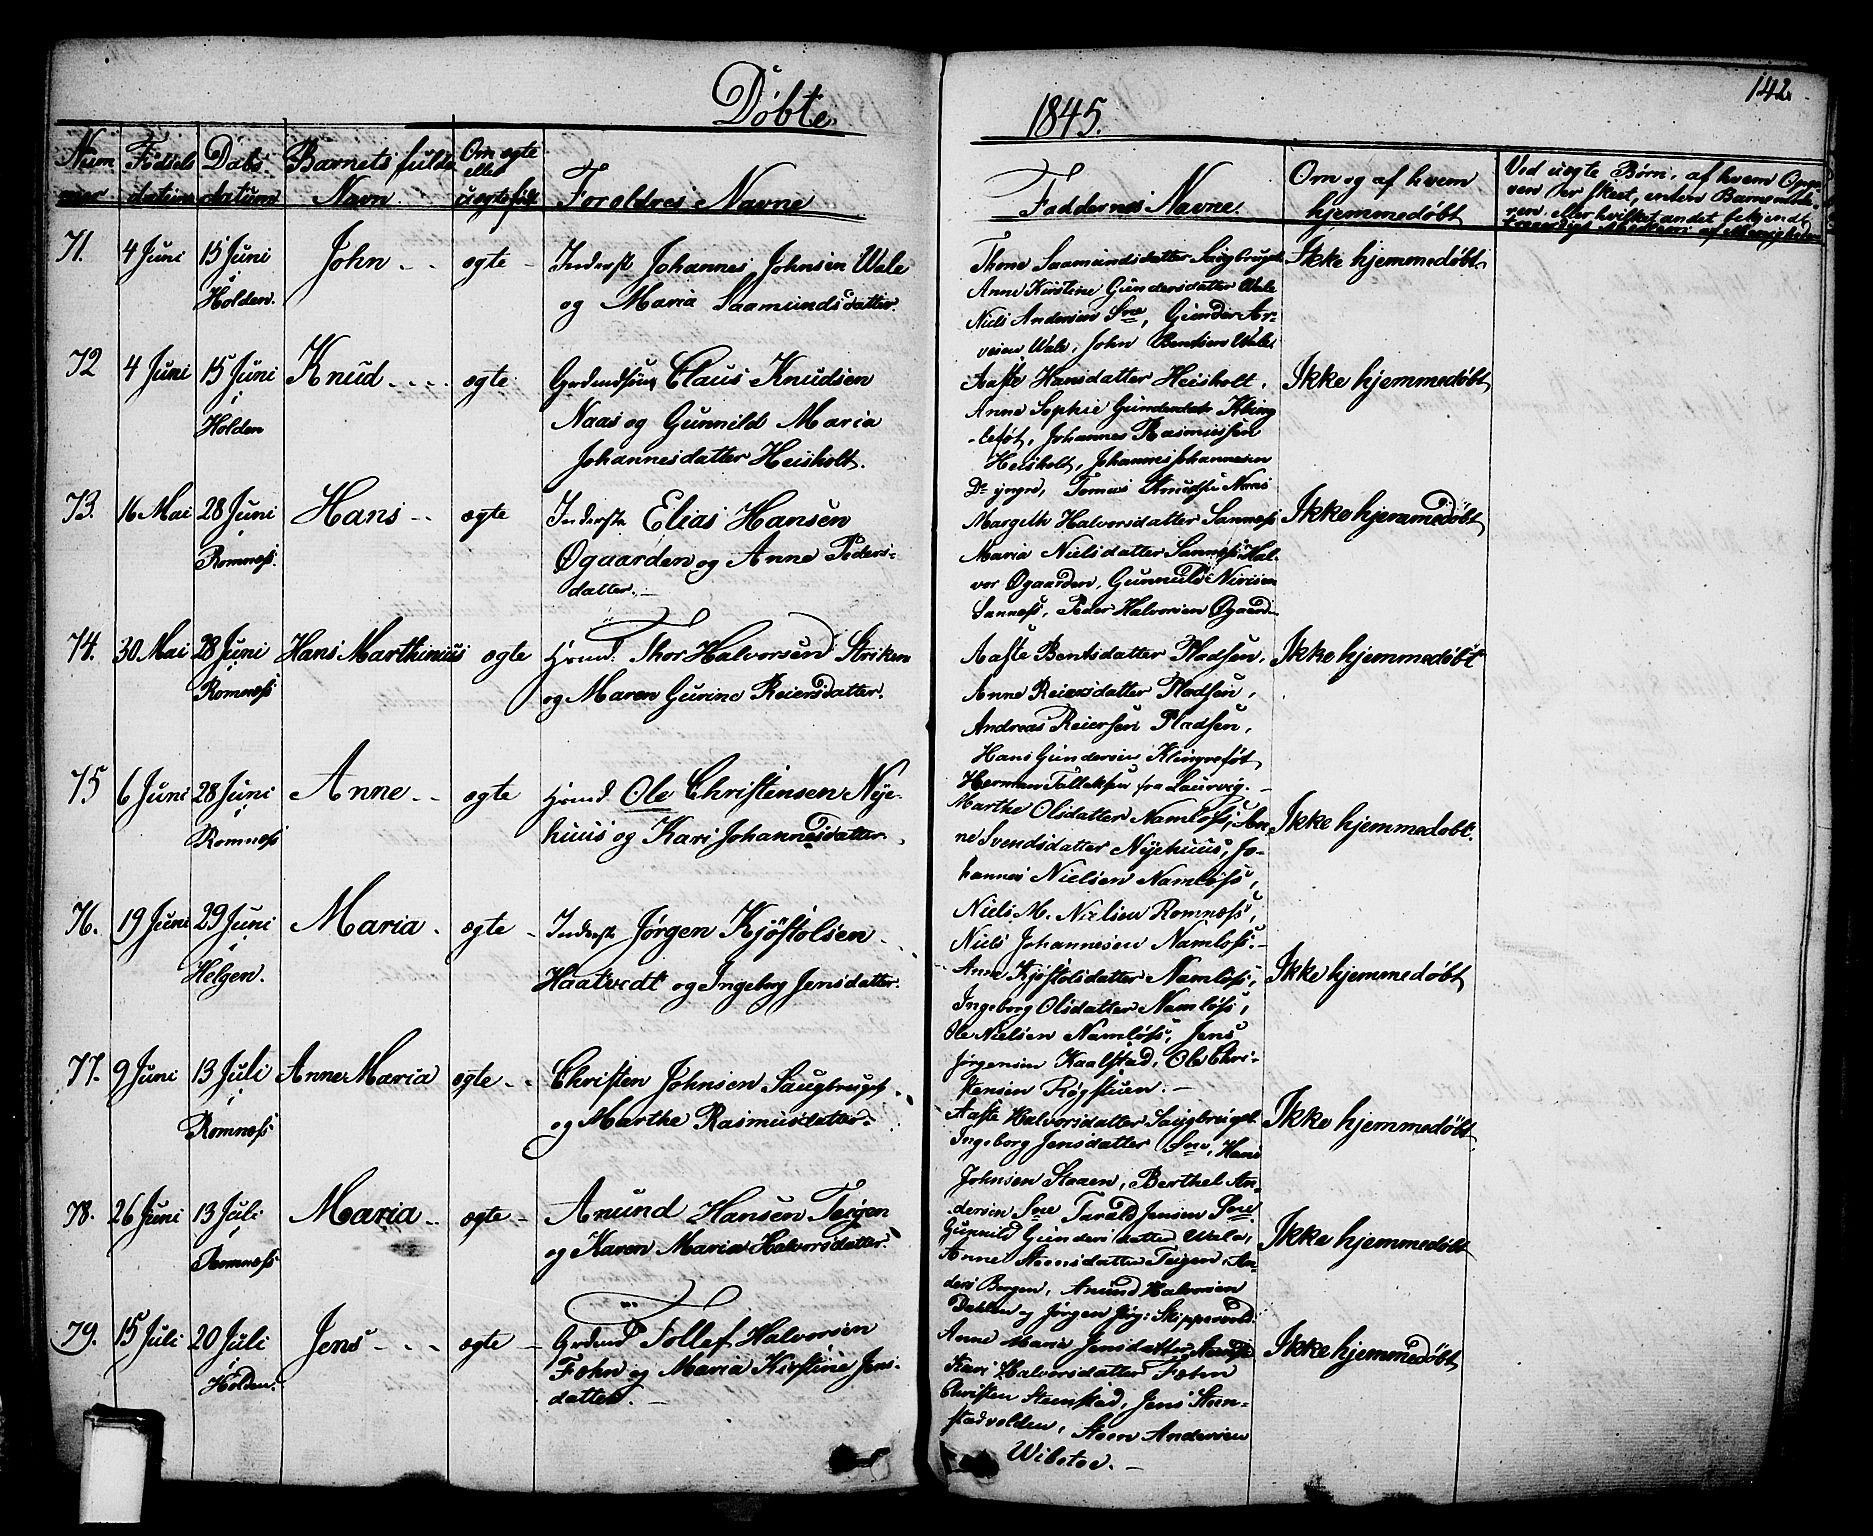 142.
Døbte 1845.
Num mer
Fødsels datum
Daabs datum
Barnets fulde Navn
Om ægte eller uægte født
Forældres Navne
Faddernes Navne.
Om og af hvem hjemmedøbt
Ved uægte Børn, af hvem Opgaven er skeet, enten Barnemoderen eller hvilket andet bekjendt troværdigt Medlem af Menigheden
71. 4 Juni 15 Juni i Holden. John ægte
Inderst Johannes Johnsen Wale
og Maria Saamundsdatter.
Thone Saamundsdatter Saugbruget
Anne Kirstine Gundersdatter Wale
Niels Andersen Sne, Gunder Ar-
vesen Wale, John Bentsen Wale.
Ikke hjemmedøbt.
72 4 Juni 15 Juni i Holden Knud ægte
Claus Knudsen
Naas og Gunnild Maria
Johannesdatter Heisholt.
Aaste Hansdatter Heisholt,
Anne Sophie Gundersdatr Kling-
lefot, Johannes Rasmussen
Heisholt, Johannes Johannesen
Do yngre, Tomas Knudsen Naas
Ikke hjemmedøbt
73. 16 Mai 28 Juni i Romness. Hans ægte
Inderste Elias Hansen
Øgaarden og Anne Peders-
datter.
Margith Halvorsdatter Sanness
Maria Nielsdatter Sanness, Hal-
vor Øgaarden, Gunnuld Nirisen
Sanness, Peder Halvorsen Øgaard
Ikke hjemmedøbt
74. 30 Mai 28 Juni i Romness Hans Marthinius ægte
Hmd. Thor Halvorsen Striken
og Maren Gurine Reiersdatter.
Aaste Bentsdatter Pladsen,
Anne Reiersdatter Pladsen,
Andreas Reiersen Pladsen,
Hans Gundersen Klingrefot
Herman Tolleksen fra Laurvig.
Ikke hjemmedøbt
75 6 Juni 28 Juni i Romness Anne ægte
Hmd Ole Christensen Nye-
huus og Kari Johannesdatter.
Marthe Olsdatter Namløss, An-
ne Svendsdatter Nyehuus, Jo-
hannes Nielsen Namløss,
Niels M. Nielsen Romness,
Niels Johannesen Namløss.
Ikke hjemmedøbt.
76. 19 Juni 29 Juni i Helgen. Maria ægte
Inderste Jørgen Kjøstolsen
Haatvedt og Ingeborg Jensdatter.
Anne Kjøstolsdatter Namløss,
Ingeborg Olsdatter Namløss,
Ole Nielsen Namløss, Jens
Jørgensen Kaalstad, Ole Chri-
stensen Røgstuen.
Ikke hjemmedøbt
77. 9 Juni 13 Juli i Romness Anne Maria ægte
Christen Johnsen Saugbruget
og Marthe Rasmusdatter
Aaste Halvorsdatter Saugbruget
Ingeborg Jensdatter Sne, Hans
Johnsen Staaen, Berthel An-
dersen Sne Tarald Jensen Sne
Ikke hjemmedøbt
78. 26 Juni 13 Juli i Romness Maria ægte
Anund Hansen Teigen
og Karen Maria Halvorsdatter.
Gunnild Gundersdatter Wale,
Anne Steensdatter Teigen, An-
ders Borgen, Anund Halvorsen
Dahlen og Jørgen Jørg: Skippervold
Ikke hjemmedøbt
79. 15 Juli 20 Juli i Holden. Jens ægte
Grdmd Tollef Halvorsen
Fæhn og Maria Kirstine Jens-
datter.
Anne Maria Jensdatter
Kari Halvorsdatter Fæhn
Christen Steenstad, Jens Steen-
stadvolden, Steen Andersen
Wibetoe.
Ikke hjemmedøbt